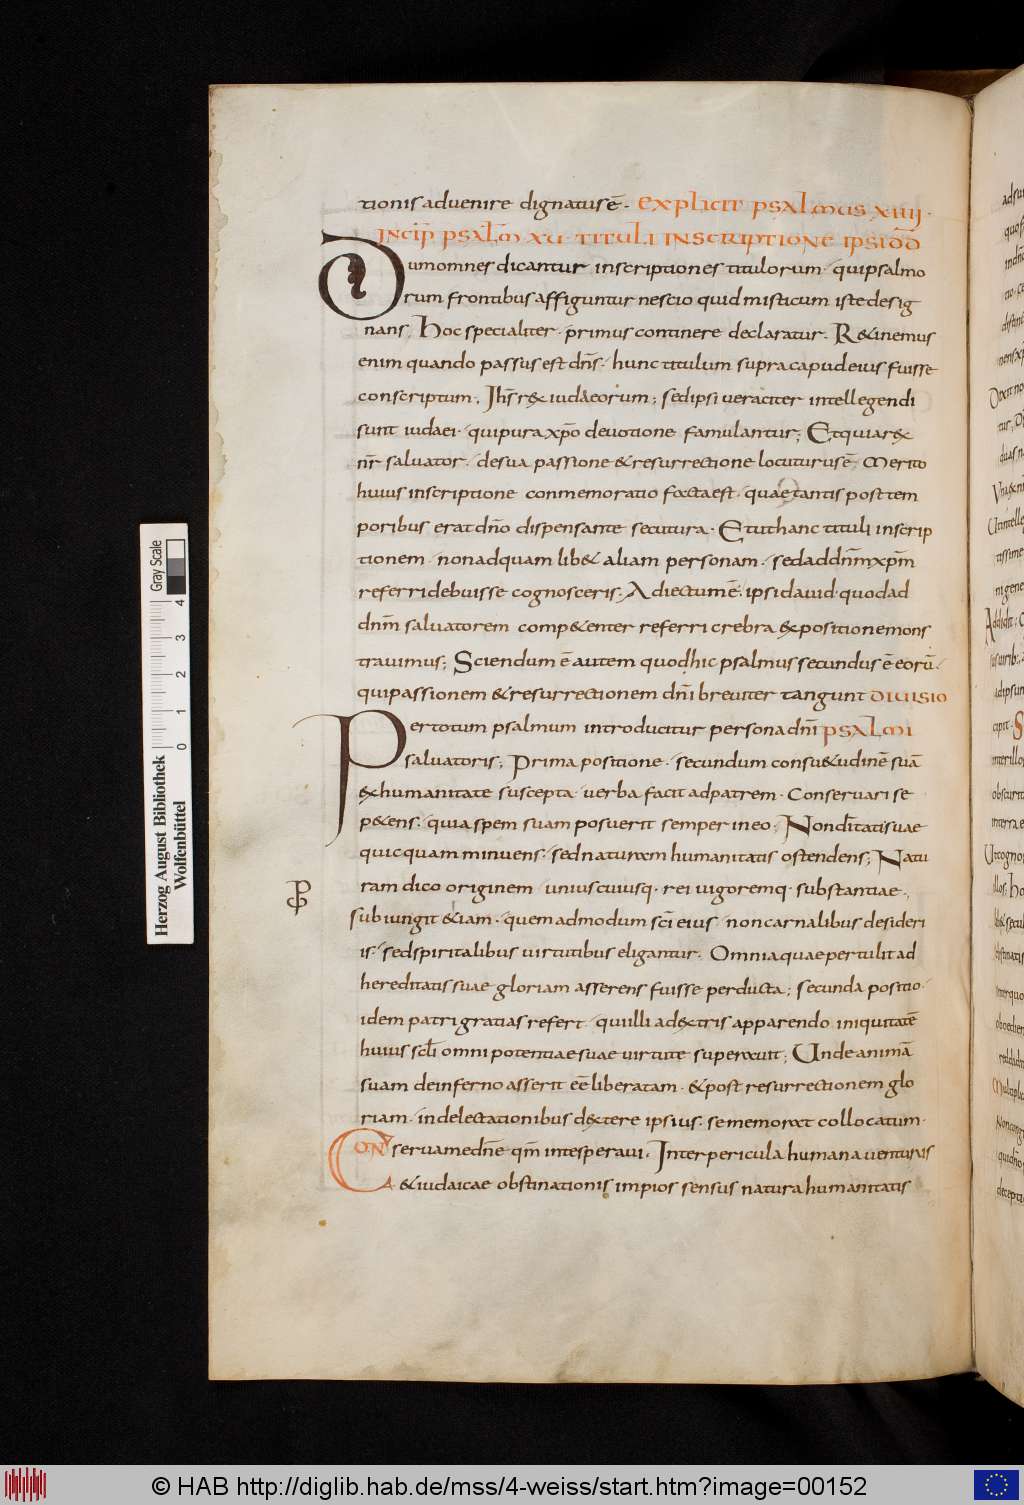 tionis advenire dignatus ē. explicit psalmus xiiij.
Incip̄ psal̄m xu. tituli inscriptione ipsi dd̄
Dum omnes dicantur inscriptiones titulorum. qui psalmo
rum frontibus affiguntur nescio quid misticum iste desig
nans. Hoc specialiter. primus continere declaratur. R&inemus
enim quando passus est dn̄s. hunc titulum supra caput eius fuisse
conscriptum; Ih̄s r&x iudaeorum; sed ipsi veraciter intellegendi
sunt iudaei. qui pura xp̄o devotione famulantur; Et quia r&x
nr̄ salvator. de sua passione & resurrectione locuturus ē; Merito
huius inscriptione conmemoratio facta est. quae tantis post tem
poribus erat dn̄o dispensante secutura. Et ut hanc tituli inscrip
tionem. non ad quamlib& aliam personam. sed ad dn̄m xp̄m
referri debuisse cognosceris. Adiectum ē. ipsi david. quod ad
dn̄m salvatorem comp&enter referri crebra &xpositione mons
travimus; Sciendum ē autem quod hic psalmus secundus ē eorū.
qui passionem & resurrectionem dn̄i breviter tangunt divisio
Per totum psalmum introducitur persona dn̄i psalmi
salvatoris; Prima positione. secundum consu&udinē suā
&x humanitate suscepta. verba facit ad patrem. Conservari se
p&ens. quia spem suam posuerit semper in eo; Non dei̅tati suae
quicquam minuens. sed naturam humanitatis ostendens; Natu
ram dico originem unius cuiusq. rei vigoremq. substantiae.
subiungit &iam. quemadmodum sc̄i eius non carnalibus desideri
is. sed spiritalibus virtutibus eligantur. Omnia quae pertulit ad
hereditatis suae gloriam asserens fuisse perducta; secunda positio.
idem patri gratias refert. qui illi a d&xtris apparendo iniquitatē
huius scl̄i omnipotentiae suae virtute superavit; Unde animā
suam de inferno asserit eē liberatam. & post resurrectionem glo
riam. in delectationibus d&xtere ipsius. se memorat collocatum.
Conserva me dn̄e qm̄ in te speravi. Inter pericula humana venturus
& iudaicae obstinationis impios sensus natura humanitatis
Gray Scale
0 1 2 3 4
Herzog August Bibliothek
Wolfenbüttel
© HAB http://diglib.hab.de/mss/4-weiss/start.htm?image=00152